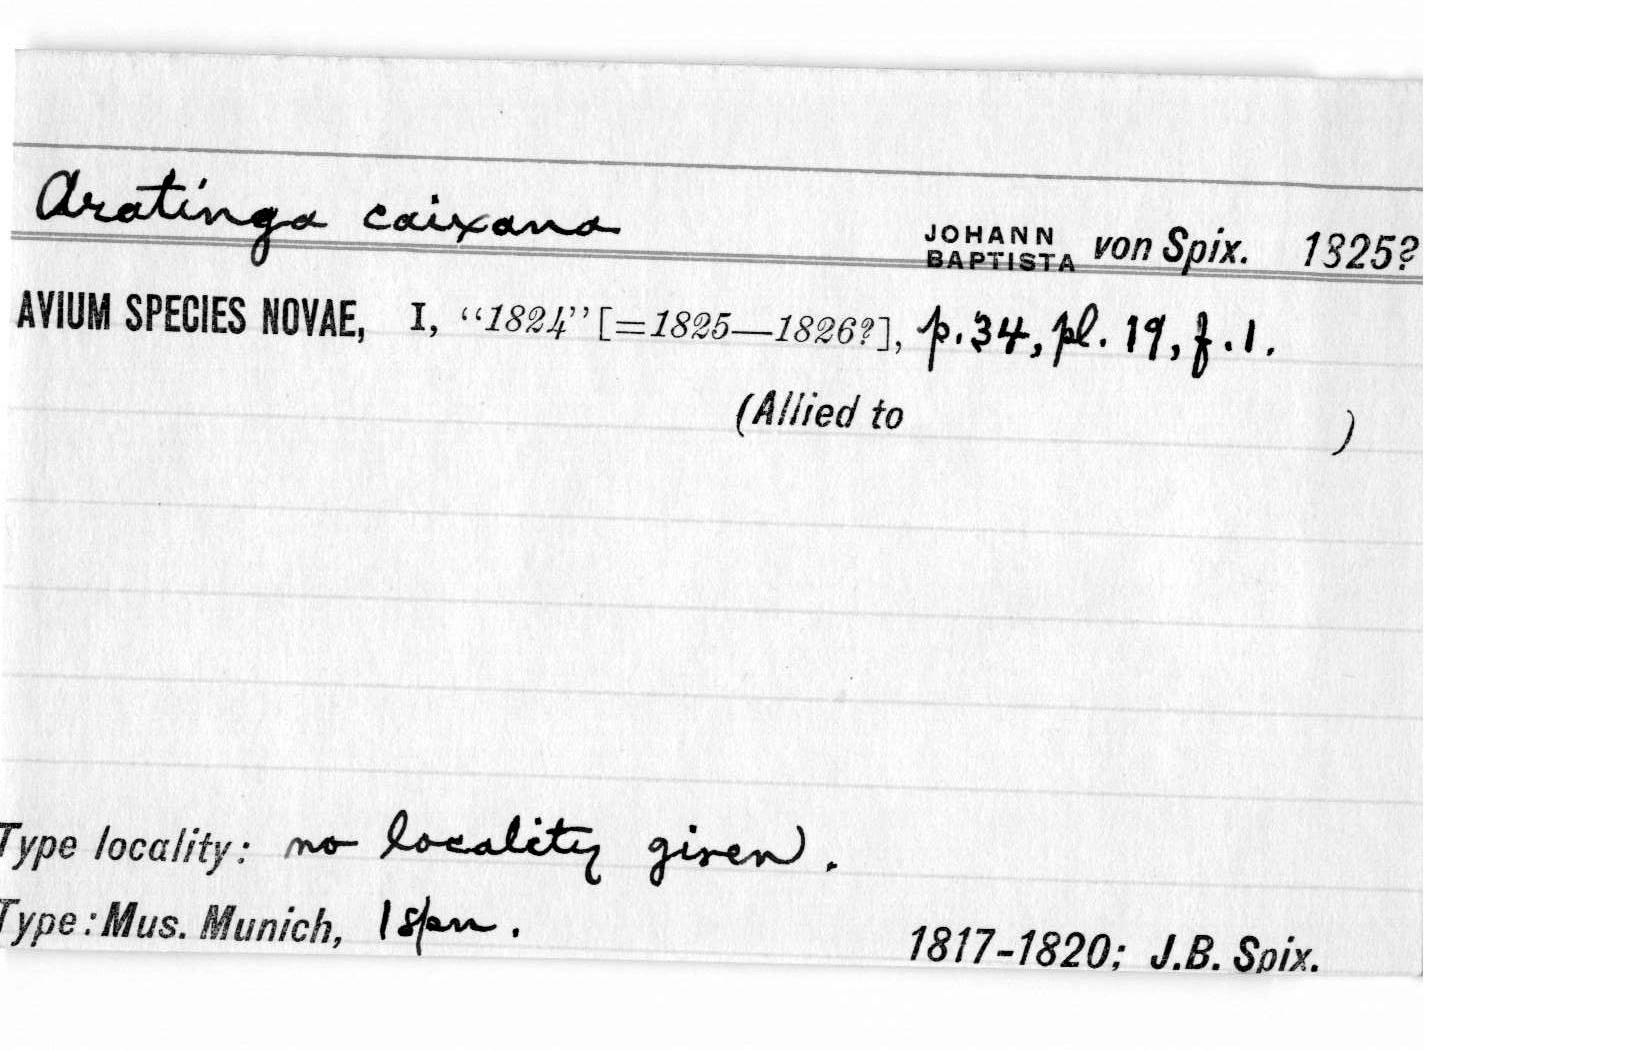 Aratinga caixana JOHANN BAPTISTA von Spix. 1825?
AVIUM SPECIES NOVAE, I, “1824” [=1825—1826?], p. 34, pl. 19, f. 1.
(Allied to )
Type locality: no locality given.
Type: Mus. Munich, 1 spm. 1817-1820; J.B. Spix.